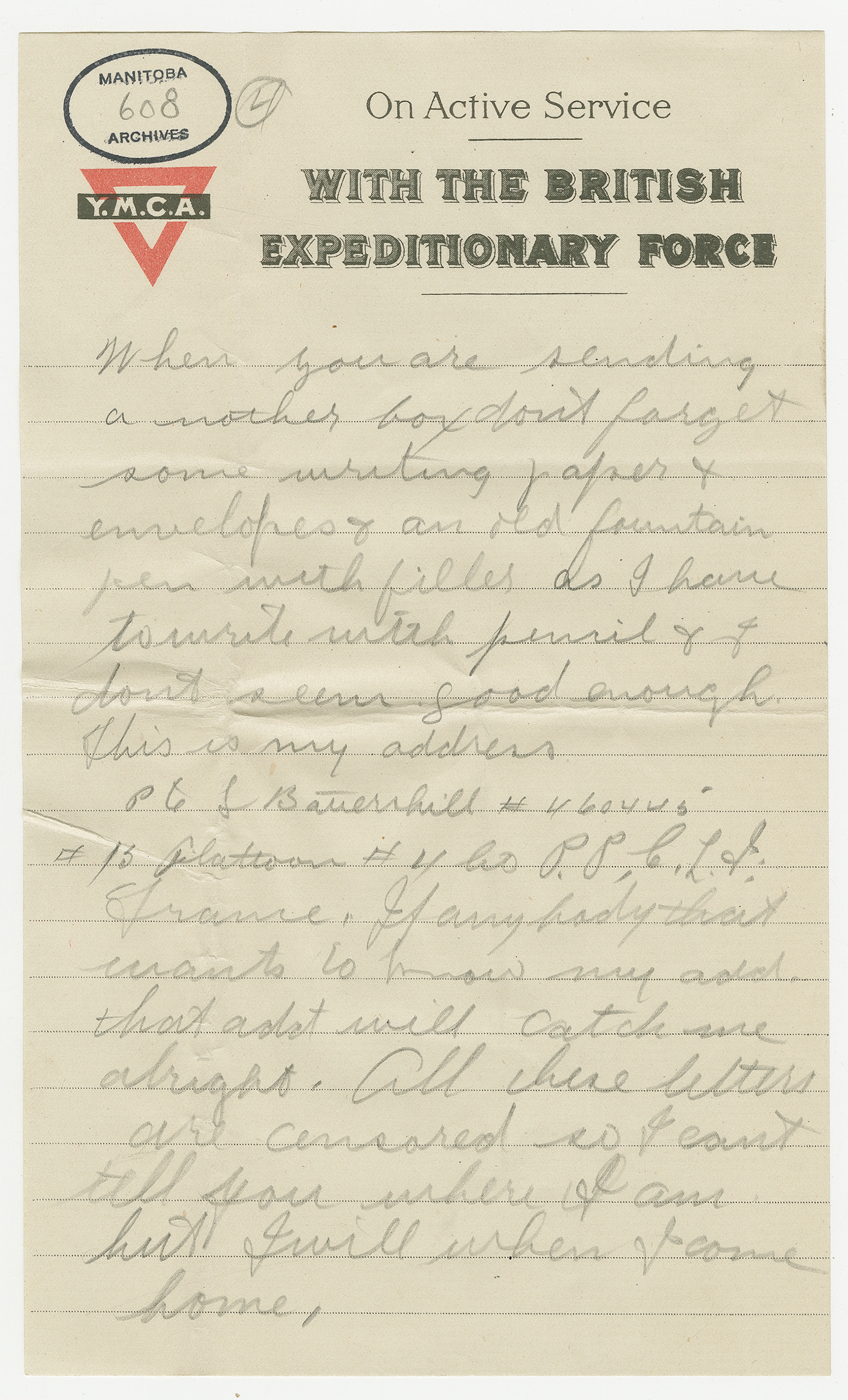 MANITOBA
608
ARCHIVES
4
Y.M.C.A.
On Active Service
WITH THE BRITISH
EXPEDITIONARY FORCE
When you are sending
a nother box dont forget
some writing paper &
envelopes & an old fountain
pen with filler as I have
to write with pencil & I
dont seem good enough.
This is my address
Pte L Battershill # 460445
# 15 Plattoon # 4 Co P.P.C.L.I.
France. If anybody that
wants to know my add.
that add will catch me
alright. All these letters
are censored so I cant
tell you where I am
but I will when I come
home,